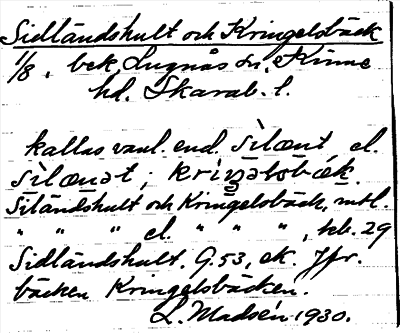 Sidländshult och Kringelsbäck
1/8, bek. Lugnås sn, Kinne
hd. Skarab. l.
kallas vanl. end. sìlænt el.
sìlænət; kriŋəlsbæk.
Siländshult och Kringelsbäck, mtl.
" " " el. " " " , kb. 29
Sidländshult. G. 53, ek. Jfr.
bäcken Kringelsbäcken.
L. Madsén 1930.